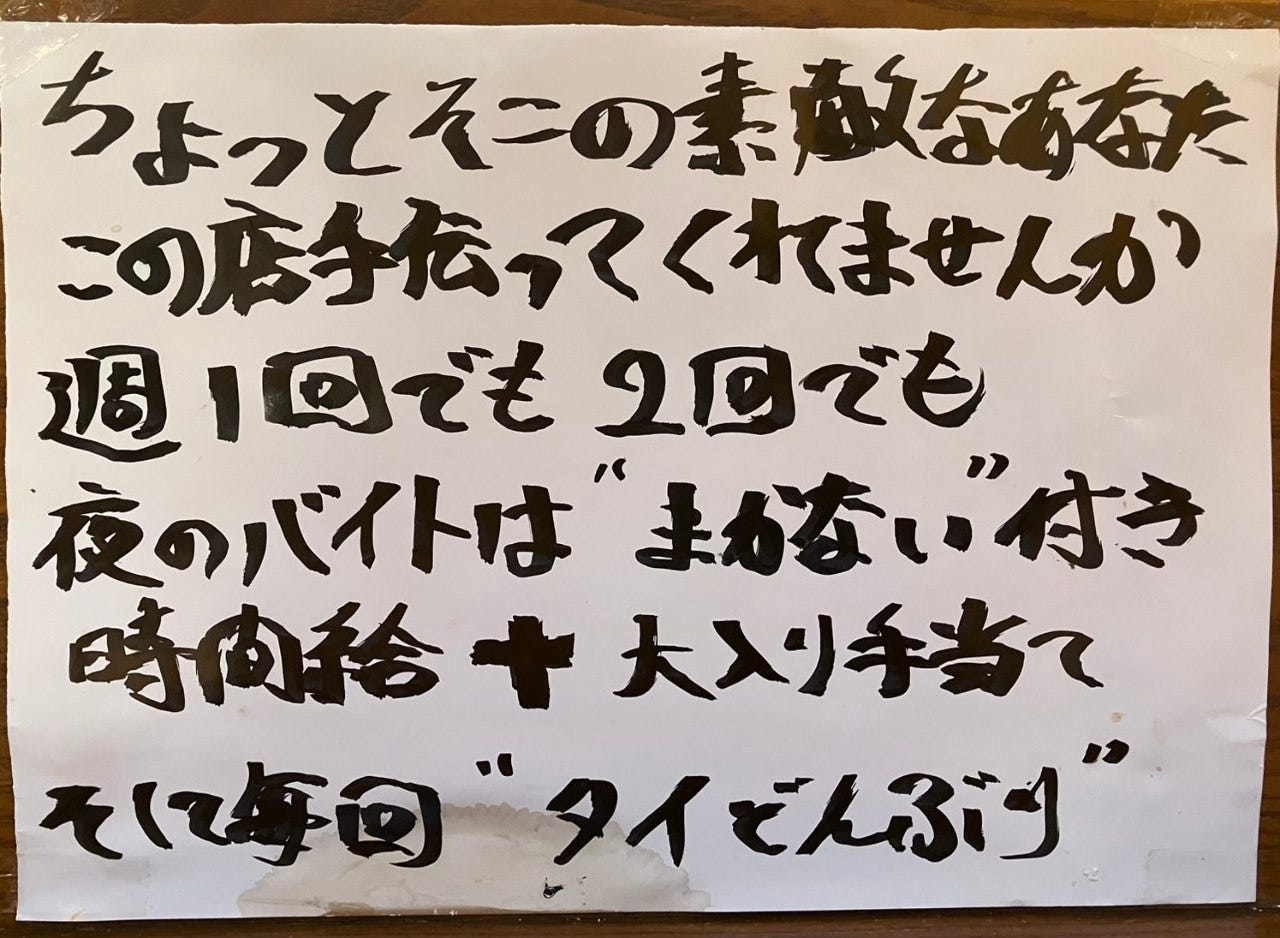 ちょっとそこの素敵なあなた
この店手伝ってくれませんか
週1回でも 2回でも
夜のバイトは“まかない”付き
時間給+大入り手当て
そして毎回“タイどんぶり”